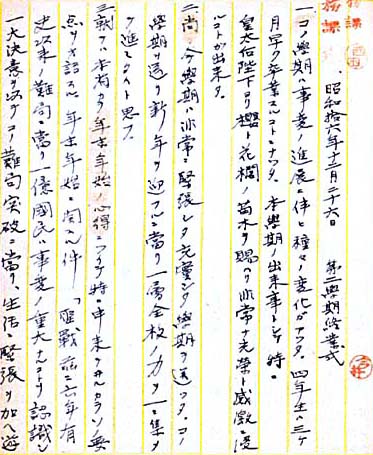 昭和拾六年十二月二十六日 第二學期終業式
一、コノ學期ハ事変ノ進展ニ伴ヒ種々ノ変化ガアツタ。四年生ハ三ケ
月早ク卒業スルコトニナツタ。本學期ノ出来事トシテ特ニ
皇太后陛下ヨリ櫻ト花欄ノ苗木ヲ賜ハリ非常ナ光栄ト感激ニ浸
ルコトガ出来タ。
二、尚ホ今學期ハ非常ニ緊張シタ充實シタ學期ヲ送ツタ。コノ
學期ヲ送リ新ノ年ヲ迎フルニ當リ一層全校ノ力ヲ一ニ集メ
テ進ミタイト思フ。
三、年末年始ノ心得ニツイテ特ニ申
年末年始ニ関スル件 有
史以来ノ難局ニ當リ一億國民ハ事変ノ重大ナルコトヲ認識シ
一大決意ヲ以テコノ難局突破ニ當リ、生活ニ緊張ヲ加ヘ遊